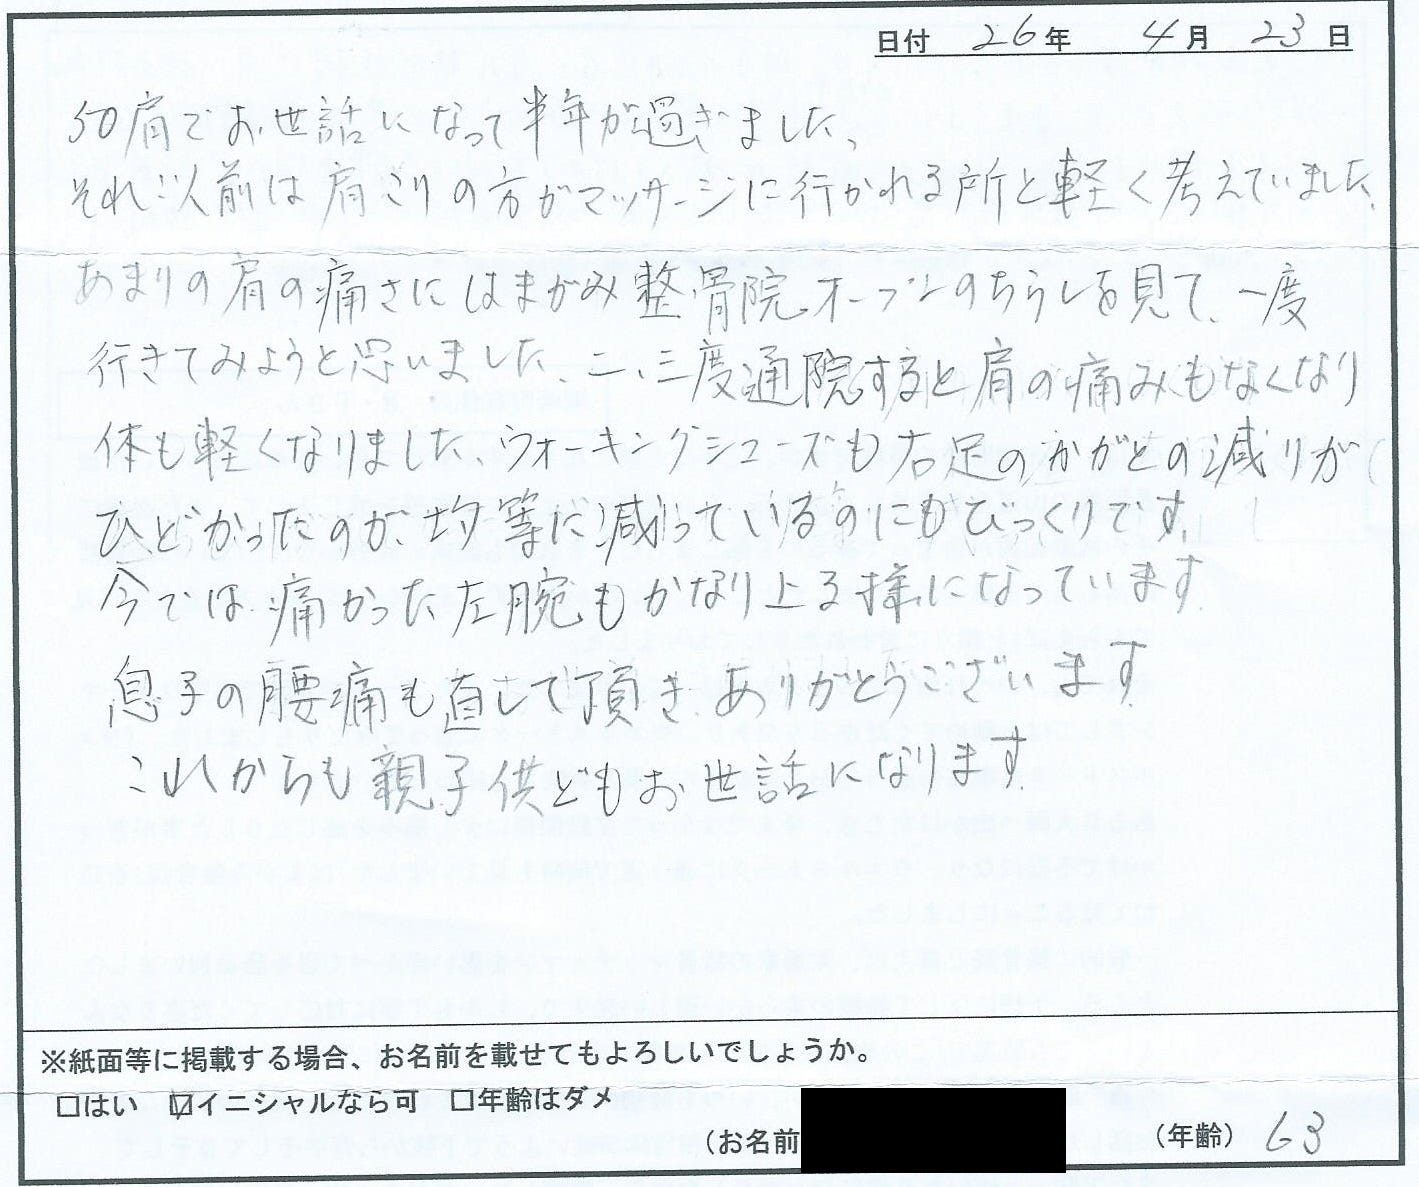 日付 26年 4月 23日
50肩でお世話になって半年が過ぎました、
それ以前は肩こりの方がマッサージに行かれる所と軽く考えていました。
あまりの肩の痛さにはまがみ整骨院オープンのちらしを見て、一度
行きてみようと思いました、二、三度通院すると肩の痛みもなくなり
体も軽くなりました、ウォーキングシューズも右足のかがとの減りが
ひどかったのが、均等に減っているのにもびっくりです。
今では、痛かった左腕もかなり上る様になっています。
息子の腰痛も直して頂き、ありがとうございます。
これからも親子供どもお世話になります。
※紙面等に掲載する場合、お名前を載せてもよろしいでしょうか。
□はい ☑イニシャルなら可 □年齢はダメ
(お名前 (年齢) 63